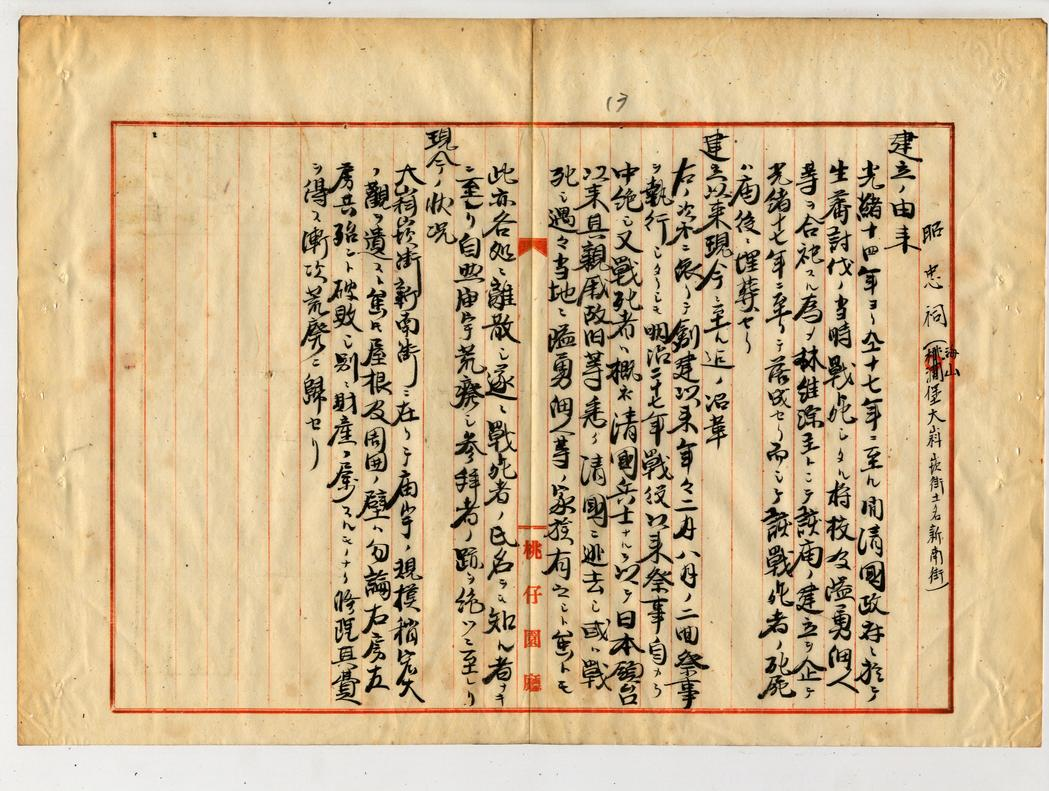 13
昭忠祠(海山堡大科崁街土名新南街)
建立ノ由来
光緒十四年ヨリ仝十七年ニ至ル間清國政府ニ於テ
生蕃討伐ノ当時戰死シタル将校及隘勇個人
等ヲ合祀スル為メ林維源主トシテ該廟ノ建立ヲ企テ
光緒十七年ニ至リテ落成セリ而シテ該戰死者ノ死屍
ハ廟後ニ埋葬セリ
建立以来現今ニ至ル迄ノ沿革
右ノ次第ニ依リテ創建以来年々二月八月ノ二回祭事
ヲ執行シタリシモ明治二十七年戰役以来祭事自カラ
中絶シ又戰死者ハ概ネ清國兵士ナルヲ以テ日本領台
以来其親戚故旧等悉ク清國ニ逃去シ或ハ戰
死ニ遇々当地ニ隘勇個人等ノ家族有之シト雖トモ
此亦各処ニ離散シ遂ニ戰死者ノ氏名ヲモ知ル者ナキ
ニ至リ自然庙宇荒廢シ参拝者ノ跡ヲ絶ツニ至レリ
現今ノ状况
大嵙崁街新南街ニ在リテ庙宇ノ規模稍宏大
ノ觀ヲ遺スト雖モ屋根及周囲ノ壁ハ勿論左房右
房共殆ント破敗シ別ニ財産ノ属スルモノナク修繕其費
ヲ得ス漸次荒廢ニ歸セリ
桃仔園廳